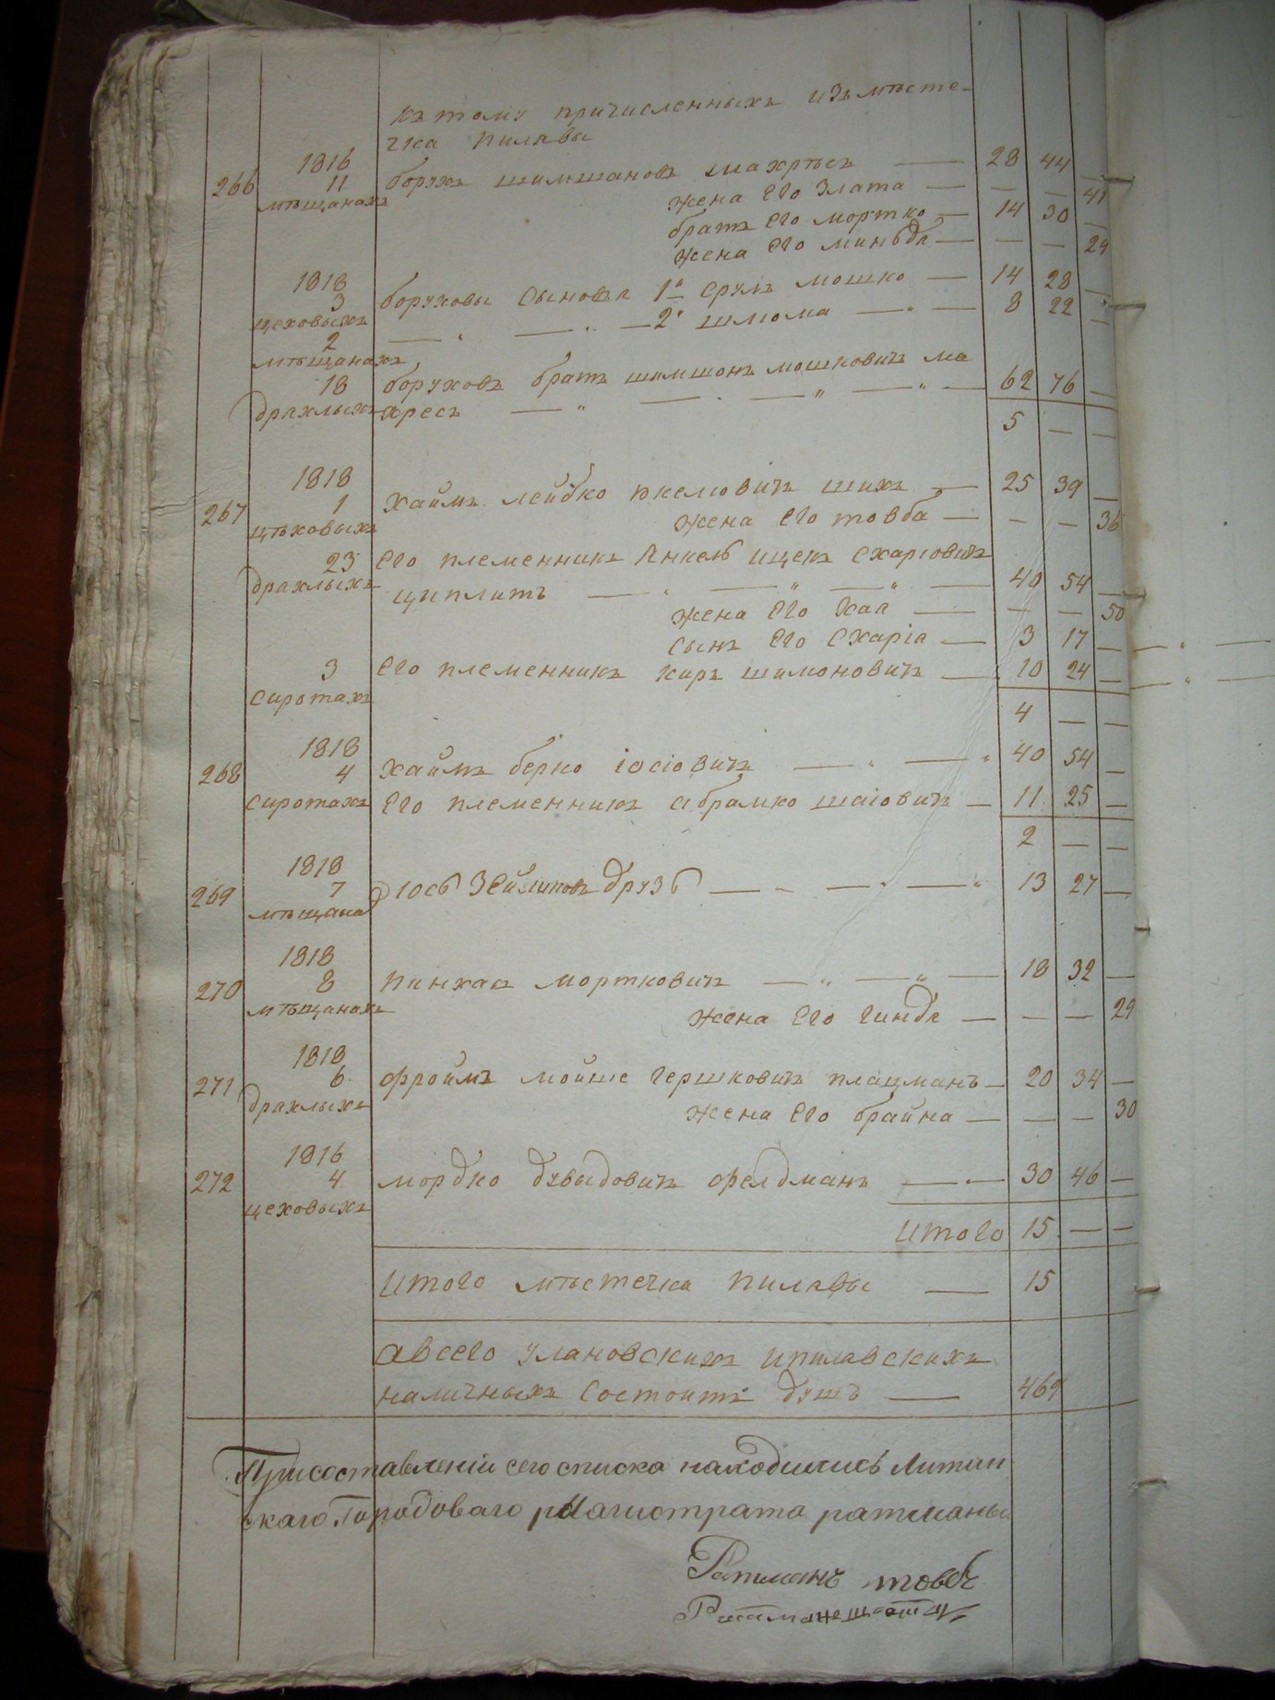 къ тому причисленныхъ изъ мѣсте-
чка пилявы
266 1816 11 мѣщанахъ борухъ шимшановъ махрѣсъ — 28 44 —
жена его злата — — — 41
братъ его мортко — 14 30 —
жена его миньдя — — — 29
1818 3 цеховыхъ боруховы сыновья 1й сруль мошко — 14 28 —
2 мѣщанахъ — „ — „ — 2й шлиома — „ — 8 22 —
18 дряхлыхъ боруховъ братъ шимшонъ мошковичъ ма
хресъ — „ — „ — „ — „ — 62 76 —
5 — —
267 1818 1 цѣховыхъ хаимъ лейбко шихъ — 25 39 —
жена его товба — — — 36
23 дряхлыхъ его племенникъ янкель ицекъ схаріовичъ
циплитъ — „ — „ — „ — 40 54 —
жена его хая — — — 50
сынъ его схарія — 3 17 —
3 сиротахъ его племенникъ шимоновичъ — 10 24 —
4 — —
268 1818 4 сиротахъ хаимъ берко іосіовичъ — „ — „ 40 54 —
его племенникъ абрамко шаіовичъ — 11 25 —
2 — —
269 1818 7 мѣщана іось зейликовъ друзь — „ — „ — „ 13 27 —
270 1818 8 мѣщанахъ пинхас мортковичъ — „ — „ — 18 32 —
жена его гиндя — — — 29
271 1818 6 дряхлыхъ фроимъ мойше гершковичъ плацманъ — 20 34 —
жена его брайна — — — 30
272 1816 4 цеховыхъ мордко дувыдовичъ фелдманъ — „ — 30 46 —
итого 15 — —
итого мѣстечка пилявы — 15
а всего улановскихъ и пилявскихъ
наличныхъ состоитъ душъ — 469
При составленіи сего списка находились Литин
скаго Городоваго Магистрата ратманы
Ратманъ товбъ
Ратманъ